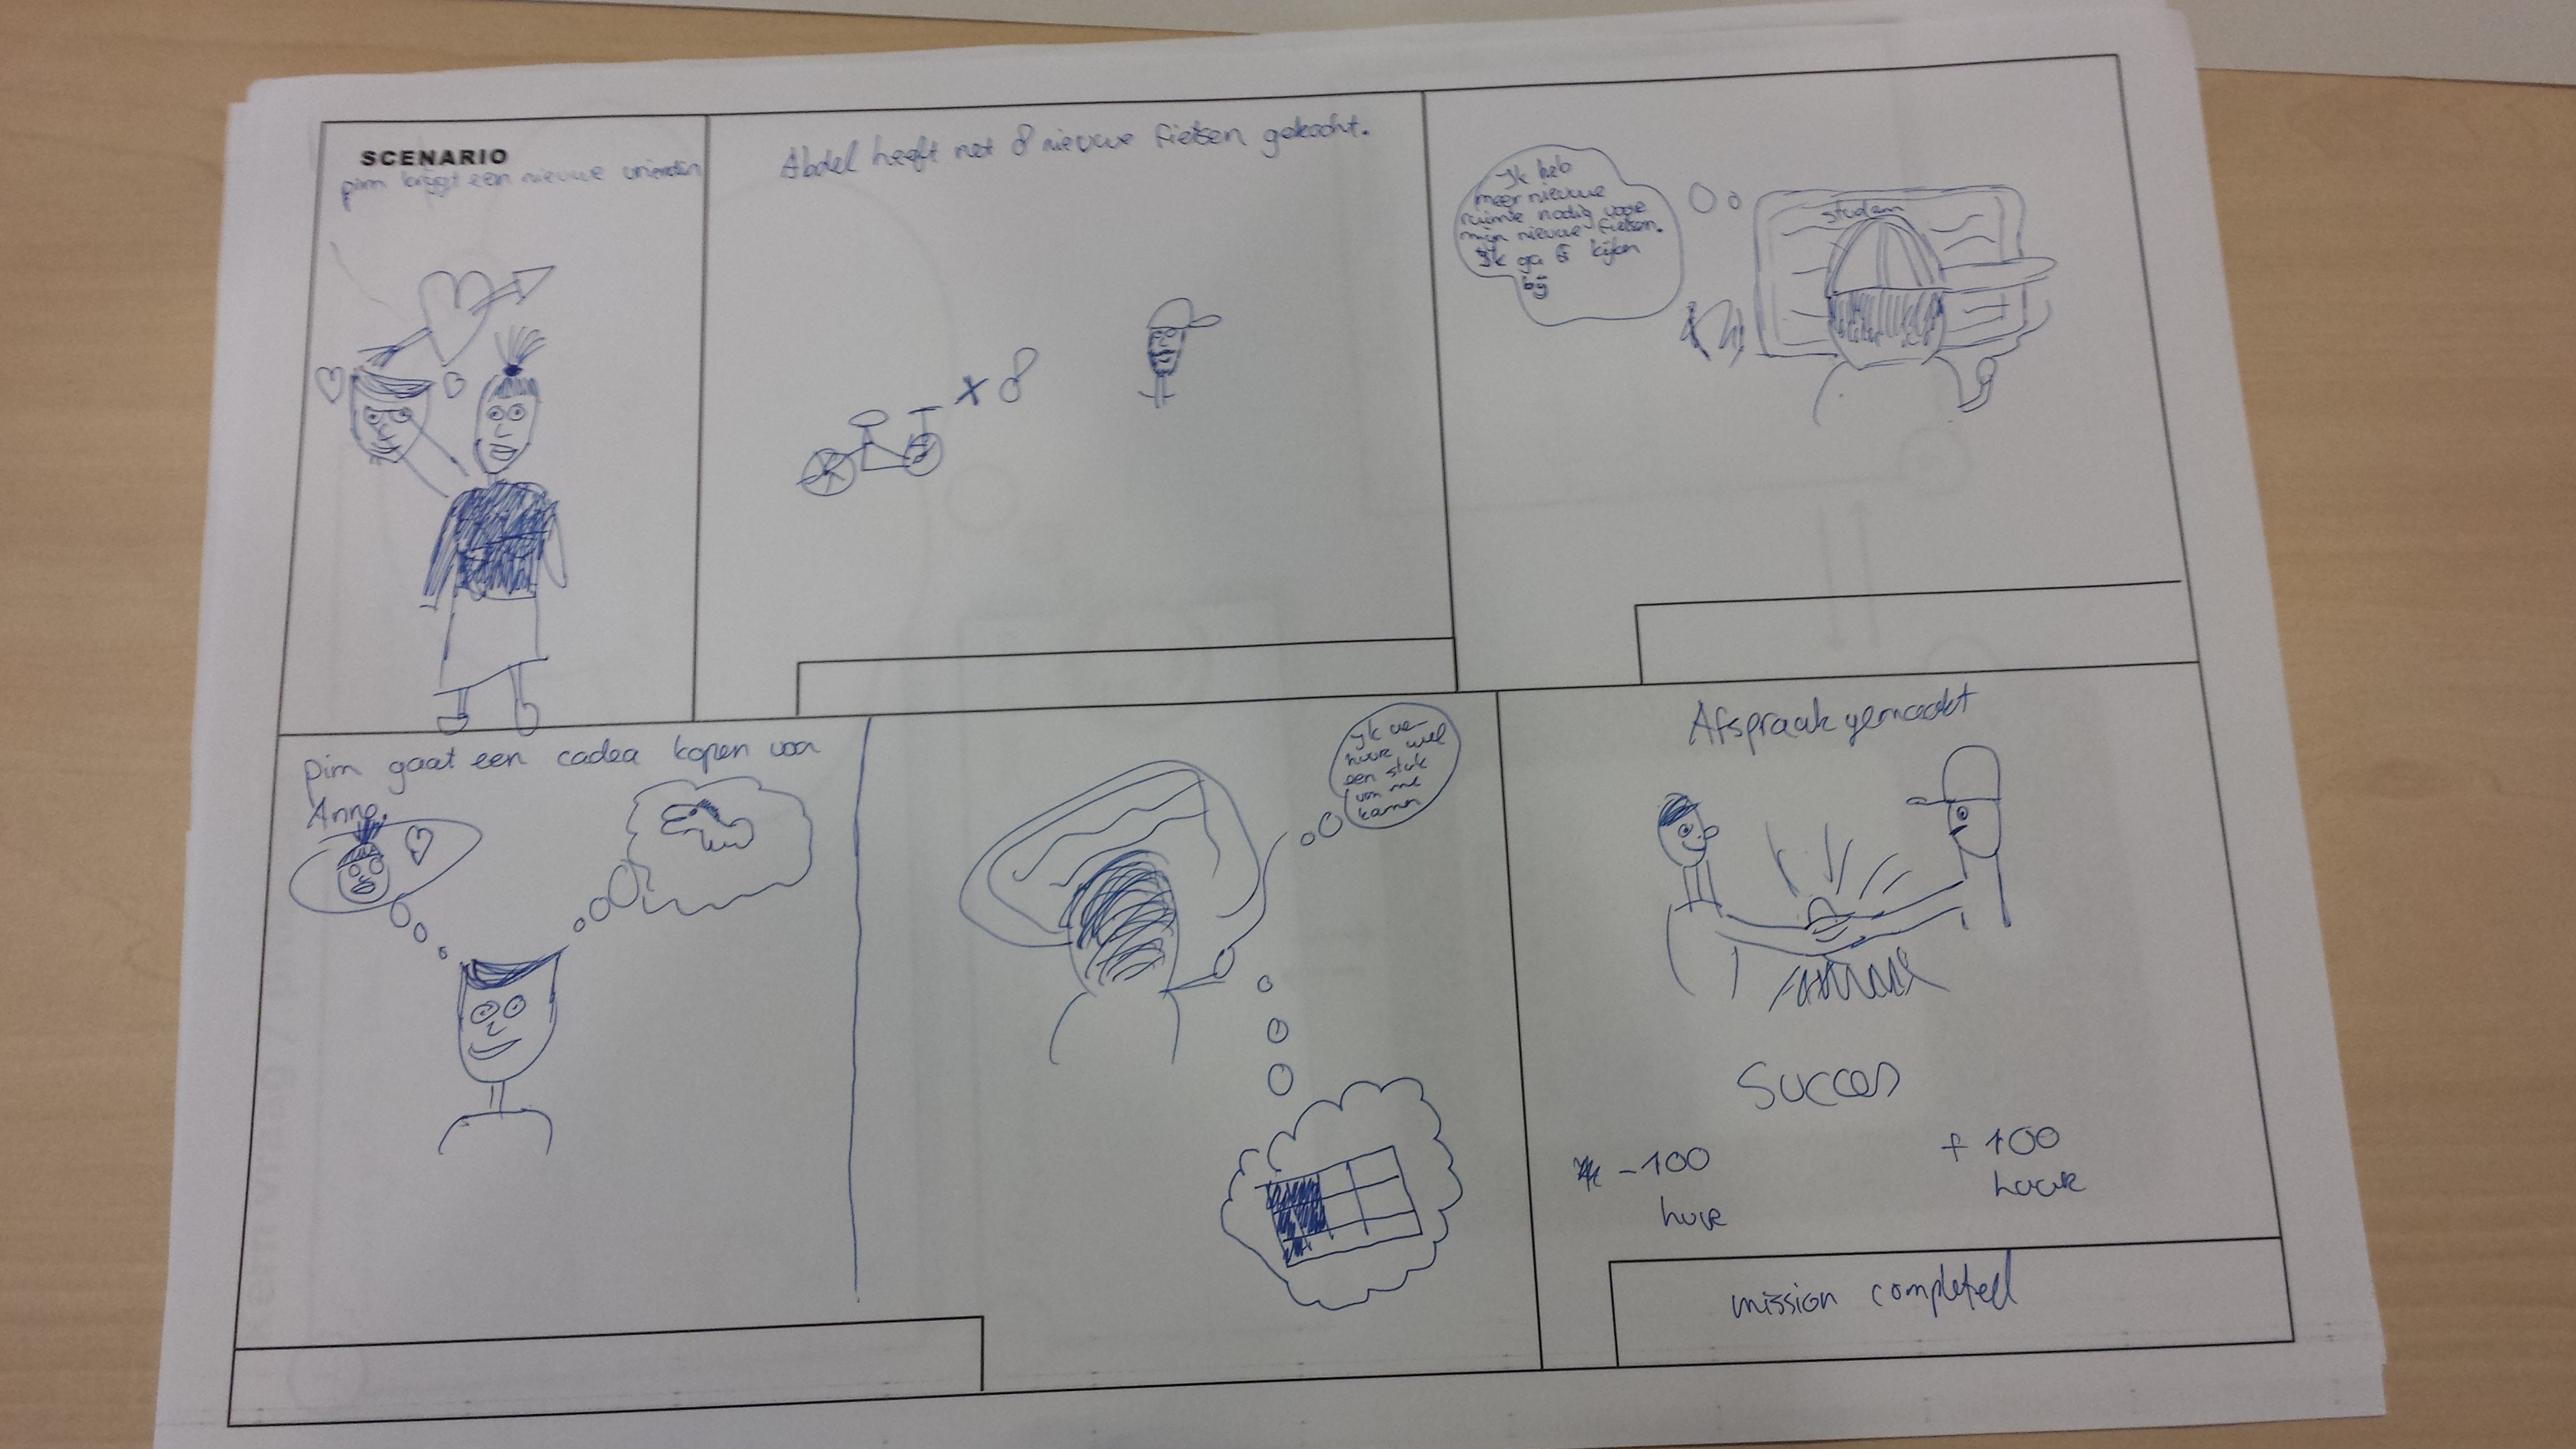 SCENARIO
pim krijgt een nieuwe vriendin
Abdel heeft net 8 nieuwe fietsen gekocht.
x 8
Ik heb
meer nieuwe
ruimte nodig voor
mijn nieuwe fietsen.
Ik ga kijken
bij
studem
pim gaat een cadea kopen voor
Anne.
Ik ver
huur wel
een stuk
van me
kamer
Afspraak gemaakt
Succes
-100
huur
+ 100
huur
mission completed